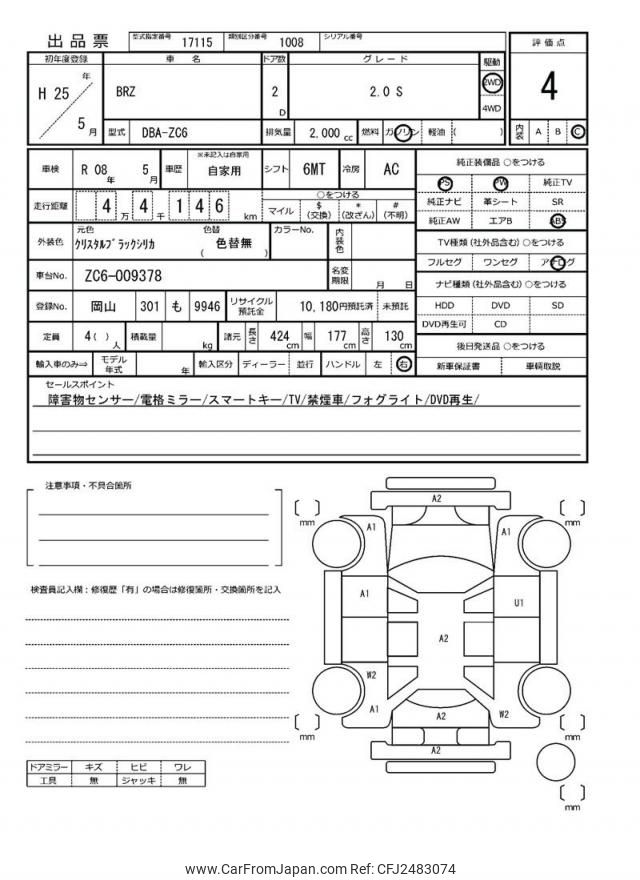 出品票 型式指定番号 17115 類別区分番号 1008 シリアル番号
初年度登録 車名 ドア数 グレード 駆動 評価点
H 25 年 5 月 BRZ 2 D 2.0 S 2WD 4WD 4
型式 DBA-ZC6 排気量 2,000 cc 燃料 ガソリン 軽油 ( ) 内装 A B C
車検 R 08 年 5 月 車歴 ※未記入は自家用 自家用 シフト 6MT 冷房 AC
走行距離 4 万 4 千 1 4 6 km ○をつける マイル $ (交換) * (改ざん) # (不明)
外装色 元色 クリスタルブラックシリカ 色替 ( 色替無 ) カラーNo. 内装色
車台No. ZC6-009378 名変期限 月 日
登録No. 岡山 301 も 9946 リサイクル預託金 10,180円預託済 未預託
定員 4( ) 人 積載量 kg 諸元 長さ 424 cm 幅 177 cm 高さ 130 cm
輸入車のみ⇒ モデル年式 年 輸入区分 ディーラー 並行 ハンドル 左 右
純正装備品 ○をつける
PS PW 純正TV
純正ナビ 革シート SR
純正AW エアB ABS
TV種類 (社外品含む) ○をつける
フルセグ ワンセグ アナログ
ナビ種類 (社外品含む) ○をつける
HDD DVD SD
DVD再生可 CD
後日発送品 ○をつける
新車保証書 車輌取説
セールスポイント
障害物センサー/電格ミラー/スマートキー/TV/禁煙車/フォグライト/DVD再生/
注意事項・不具合箇所
検査員記入欄：修復歴「有」の場合は修復箇所・交換箇所を記入
A2
mm mm
A1 A1
A1 U1
A2
W2
A1 A2 W2
mm A2 mm
mm
ドアミラー キズ ヒビ ワレ
工具 無 ジャッキ 無
www.CarFromJapan.com Ref: CFJ2483074